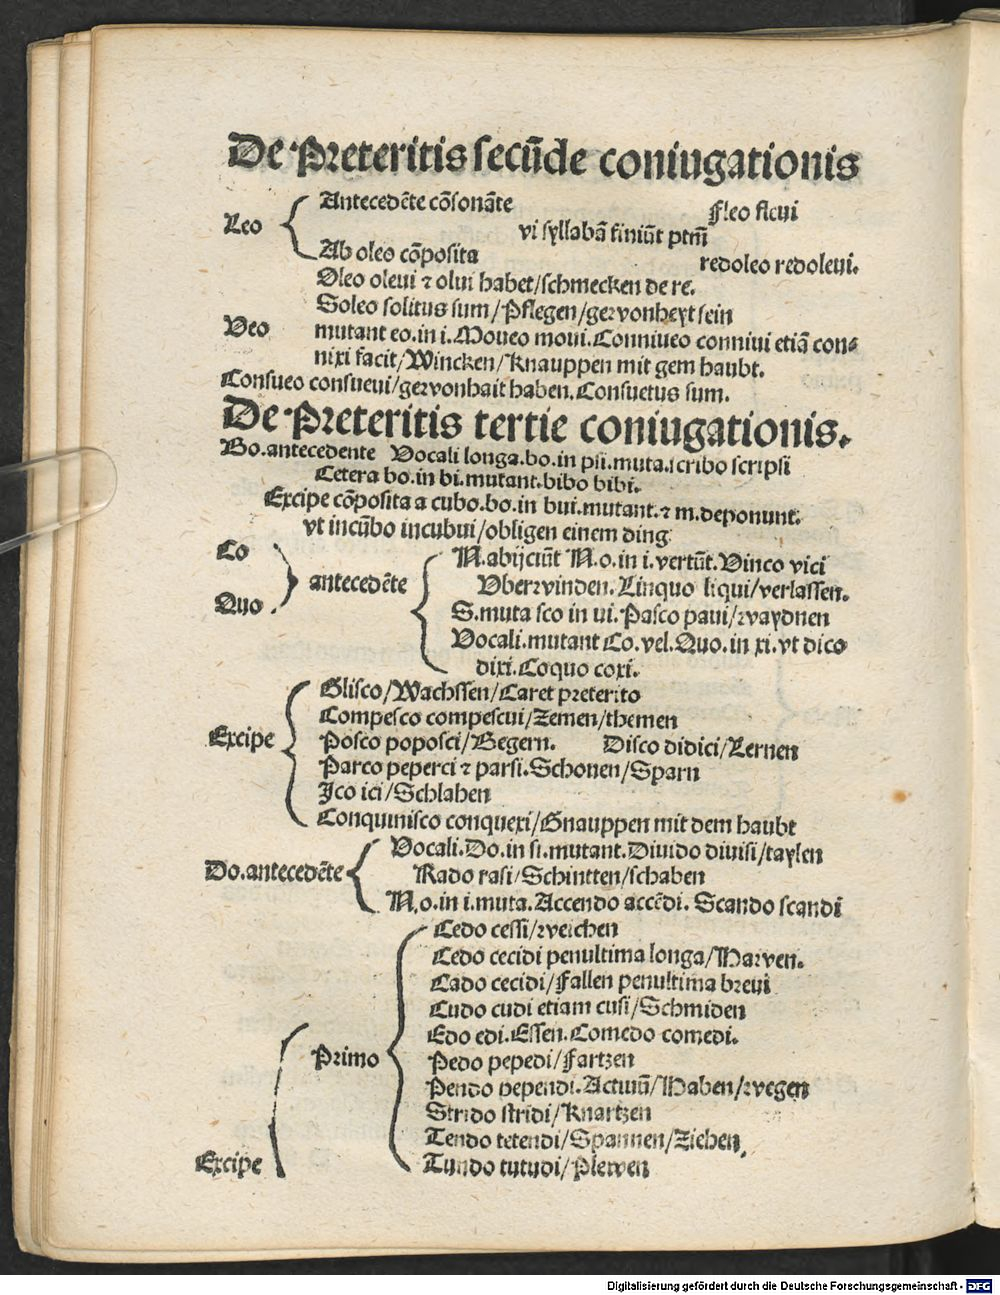 De Preteritis secūde coniugationis
Leo
Antecedēte cōsonāte
Fleo fleui
vi syllabā finiūt ptm̄
Ab oleo cōposita
redoleo redoleui.
Oleo oleui ⁊ olui habet/schmecken de re.
Soleo solitus sum/Pflegen/gewonheyt sein
Veo mutant eo.in i.Moueo moui.Conniueo conniui etiā con⸗
nixi facit/Wincken/Knauppen mit gem haubt.
Consueo consueui/gewonhait haben.Consuetus sum.
De Preteritis tertie coniugationis.
Bo.antecedente Vocali longa.bo.in psi.muta.scribo scripsi
Cetera bo.in bi.mutant.bibo bibi.
Excipe cōposita a cubo.bo.in bui.mutant.⁊ m.deponunt.
vt incūbo incubui/obligen einem ding
Co
Quo
antecedēte
N.abijciūt N.o.in i.vertūt.Vinco vici
Vberwinden.Linquo liqui/verlassen.
S.muta sco in ui.Pasco paui/waydnen
Vocali.mutant Co.vel.Quo.in xi.vt dico
dixi.Coquo coxi.
Excipe
Glisco/Wachssen/Caret preterito
Compesco compescui/Zemen/themen
Posco poposci/Begern. Disco didici/Lernen
Parco peperci ⁊ parsi.Schonen/Sparn
Ico ici/Schlahen
Conquinisco conquexi/Gnauppen mit dem haubt
Do.antecedēte
Vocali.Do.in si.mutant.Diuido diuisi/taylen
Rado rasi/Schintten/schaben
N.o.in i.muta.Accendo accēdi. Scando scandi
Excipe
Primo
Cedo cessi/weichen
Cedo cecidi penultima longa/Hawen.
Cado cecidi/Fallen penultima breui
Cudo cudi etiam cusi/Schmiden
Edo edi.Essen.Comedo comedi.
Pedo pepedi/Fartzen
Pendo pependi.Actiuū/Haben/wegen
Strido stridi/Knartzen
Tendo tetendi/Spannen/Ziehen,
Tundo tutudi/Plewen
Digitalisierung gefördert durch die Deutsche Forschungsgemeinschaft - DFG